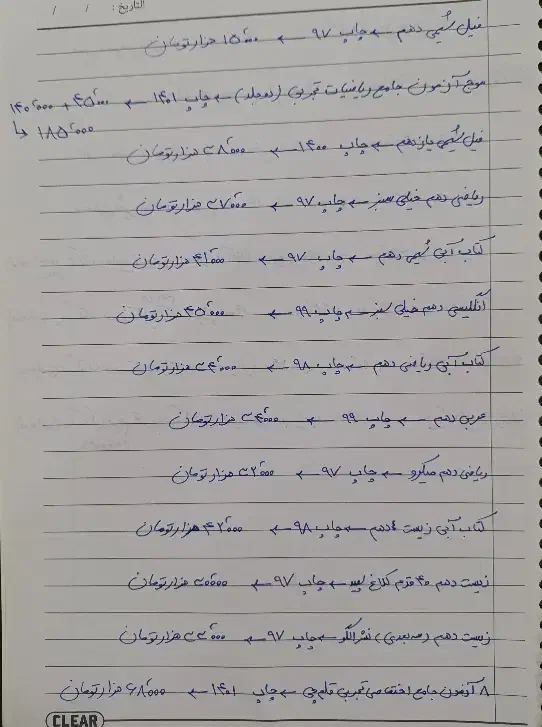 التاريخ: / /
فیل شیمی دهم ← چاپ ۹۷ ← ۱۵۰۰۰ هزارتومان
موج آزمون جامع ریاضیات تجربی (دوجلد) ← چاپ ۱۴۰۱ ← ۴۵۰۰۰ + ۱۴۰۰۰۰
↳ ۱۸۵۰۰۰
فیل شیمی یازدهم ← چاپ ۱۴۰۰ ← ۳۸۰۰۰ هزارتومان
ریاضی دهم خیلی سبز ← چاپ ۹۷ ← ۳۷۰۰۰ هزارتومان
کتاب آبی شیمی دهم ← چاپ ۹۷ ← ۴۱۰۰۰ هزارتومان
انگلیسی دهم خیلی سبز ← چاپ ۹۹ ← ۴۵۰۰۰ هزارتومان
کتاب آبی ریاضی دهم ← چاپ ۹۸ ← ۳۴۰۰۰ هزارتومان
عربی دهم ← چاپ ۹۹ ← ۳۴۰۰۰ هزارتومان
ریاضی دهم میکرو ← چاپ ۹۷ ← ۳۲۰۰۰ هزارتومان
کتاب آبی زیست دهم ← چاپ ۹۸ ← ۴۲۰۰۰ هزارتومان
زیست دهم ۴۰ قدم کلاغ سپید ← چاپ ۹۷ ← ۲۰۰۰۰ هزارتومان
زیست دهم (سه بعدی) نشرالگو ← چاپ ۹۷ ← ۳۳۰۰۰ هزارتومان
۸ آزمون جامع اختصاصی تجربی قلم چی ← چاپ ۱۴۰۱ ← ۶۸۰۰۰ هزارتومان
CLEAR